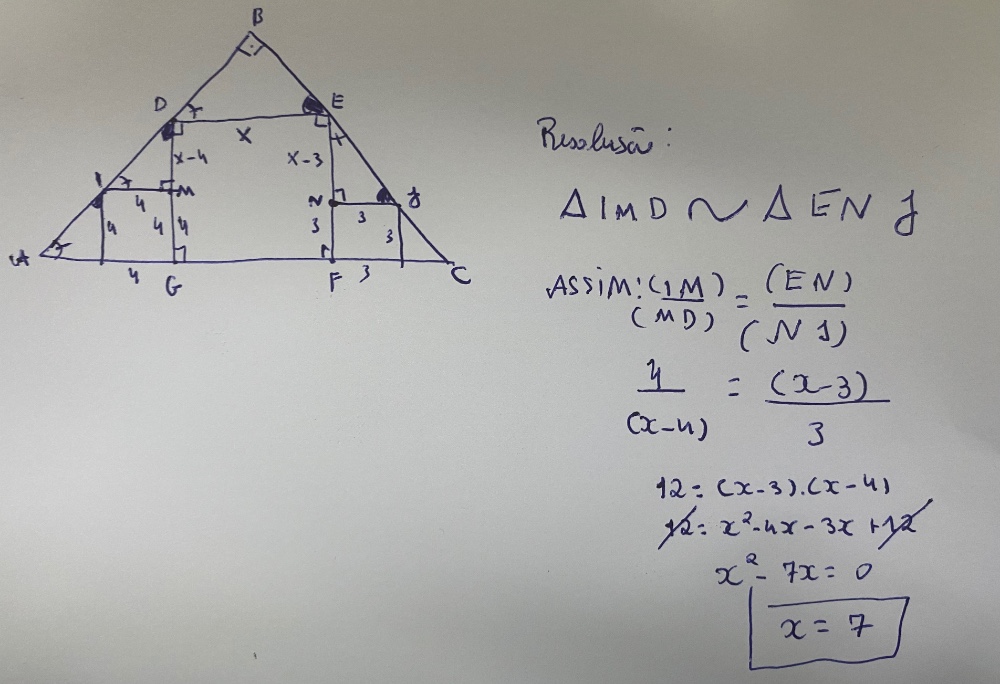 B
D E
x
x-4 x-3
I M N J
4 3
4 4 4 3 3
A 4 G F 3 C
Resolusão:
Δ IMD ~ Δ ENJ
ASSiM: (IM) = (EN)
(MD) (NJ)
4 = (x-3)
(x-4) 3
12 = (x-3).(x-4)
12 = x²-4x-3x+12
x² - 7x = 0
x = 7